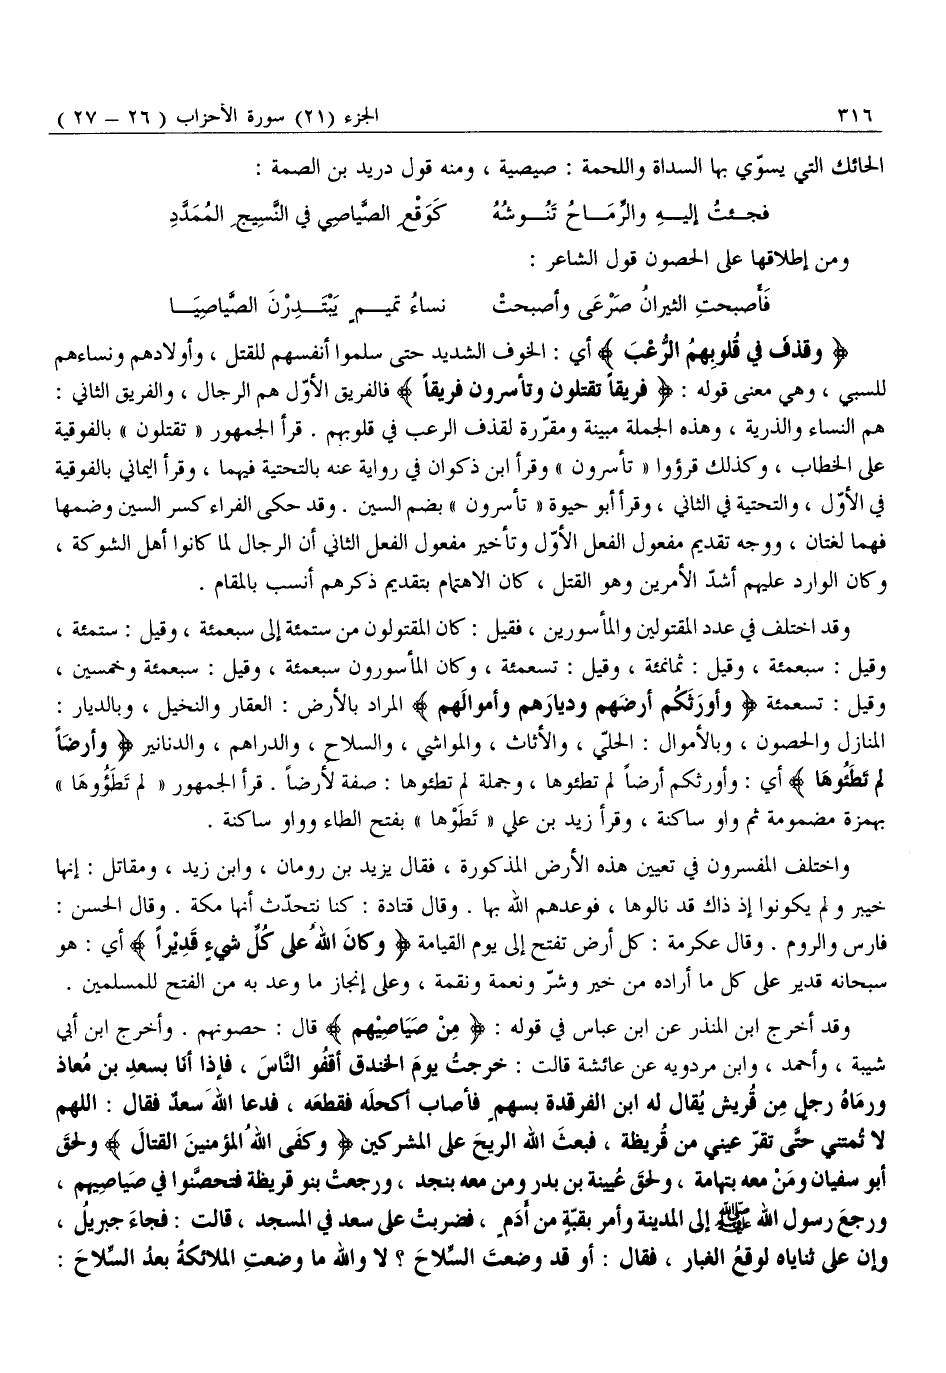 ٣١٦ الجزء (٢١) سورة الأحزاب ( ٢٦ – ٢٧ )
الحائك التي يسوّي بها السداة واللحمة : صيصية ، ومنه قول دريد بن الصمة :
فجـئتُ إليـهِ والرِّمَـاحُ تَنُـوشُهُ كَوَقْعِ الصَّياصِي في النَّسيجِ المُمَدَّدِ
ومن إطلاقها على الحصون قول الشاعر :
فَأَصبحتِ الثيرانُ صَرْعَى وأصبحتْ نساءُ تميـمٍ يَبْتَـدِرْنَ الصَّياصِيَـا
﴿ وقذفَ في قُلوبِهمُ الرُّعْبَ ﴾ أي : الخوف الشديد حتى سلموا أنفسهم للقتل ، وأولادهم ونساءهم
للسبي ، وهي معنى قوله : ﴿ فريقاً تقتلون وتأسرون فريقاً ﴾ فالفريق الأوّل هم الرجال ، والفريق الثاني :
هم النساء والذرية ، وهذه الجملة مبينة ومقرّرة لقذف الرعب في قلوبهم . قرأ الجمهور « تقتلون » بالفوقية
على الخطاب ، وكذلك قرؤوا « تأسرون » وقرأ ابن ذكوان في رواية عنه بالتحتية فيهما ، وقرأ اليماني بالفوقية
في الأوّل ، والتحتية في الثاني ، وقرأ أبو حيوة « تأسرون » بضم السين . وقد حكى الفراء كسر السين وضمها
فهما لغتان ، ووجه تقديم مفعول الفعل الأوّل وتأخير مفعول الفعل الثاني أن الرجال لما كانوا أهل الشوكة ،
وكان الوارد عليهم أشدّ الأمرين وهو القتل ، كان الاهتمام بتقديم ذكرهم أنسب بالمقام .
وقد اختلف في عدد المقتولين والمأسورين ، فقيل : كان المقتولون من ستمئة إلى سبعمئة ، وقيل : ستمئة ،
وقيل : سبعمئة ، وقيل : ثمانمئة ، وقيل : تسعمئة ، وكان المأسورون سبعمئة ، وقيل : سبعمئة وخمسين ،
وقيل : تسعمئة ﴿ وأورَثَكُم أرضَهم وديارَهم وأموالَهم ﴾ المراد بالأرض : العقار والنخيل ، وبالديار :
المنازل والحصون ، وبالأموال : الحليّ ، والأثاث ، والمواشي ، والسلاح ، والدراهم ، والدنانير ﴿ وأرضَاً
لم تَطَئُوهَا ﴾ أي : وأورثكم أرضاً لم تطئوها ، وجملة لم تطئوها : صفة لأرضاً . قرأ الجمهور « لم تَطَؤُوهَا »
بهمزة مضمومة ثم واو ساكنة ، وقرأ زيد بن علي « تَطَوْها » بفتح الطاء وواو ساكنة .
واختلف المفسرون في تعيين هذه الأرض المذكورة ، فقال يزيد بن رومان ، وابن زيد ، ومقاتل : إنها
خيبر و لم يكونوا إذ ذاك قد نالوها ، فوعدهم الله بها . وقال قتادة : كنا نتحدّث أنها مكة . وقال الحسن :
فارس والروم . وقال عكرمة : كل أرض تفتح إلى يوم القيامة ﴿ وكانَ اللهُ على كُلِّ شيءٍ قَدِيْراً ﴾ أي : هو
سبحانه قدير على كل ما أراده من خير وشرّ ونعمة ونقمة ، وعلى إنجاز ما وعد به من الفتح للمسلمين .
وقد أخرج ابن المنذر عن ابن عباس في قوله : ﴿ مِنْ صَيَاصِيْهم ﴾ قال : حصونهم . وأخرج ابن أبي
شيبة ، وأحمد ، وابن مردويه عن عائشة قالت : خرجتُ يومَ الخندق أقفُو النَّاسَ ، فإذا أنا بسعدِ بن مُعاذ
ورمَاهُ رجلٍ مِن قُريش يُقال له ابن الفرقدة بسهمٍ فأصاب أكحلَه فقطعَه ، فدعا اللهَ سعدٌ فقال : اللهم
لا تُمتني حتَّى تقرّ عيني من قُريظة ، فبعثَ الله الريحَ على المشركين ﴿ وكفَى اللهُ المؤمنينَ القتالَ ﴾ ولحقَ
أبو سفيان ومَنْ معه بتهامة ، ولحقَ عُيينة بن بدر ومن معه بنجد ، ورجعتْ بنو قريظة فتحصَّنوا في صَياصِيهم ،
ورجعَ رسول الله ﷺ إلى المدينة وأمر بقبّةٍ من أَدَمٍ ، فضُربتْ على سعد في المسجد ، قالت : فجاءَ جبريلُ ،
وإن على ثناياه لوقعُ الغبار ، فقال : أو قد وضعتَ السِّلاحَ ؟ لا والله ما وضعتِ الملائكةُ بعدُ السِّلاحَ :